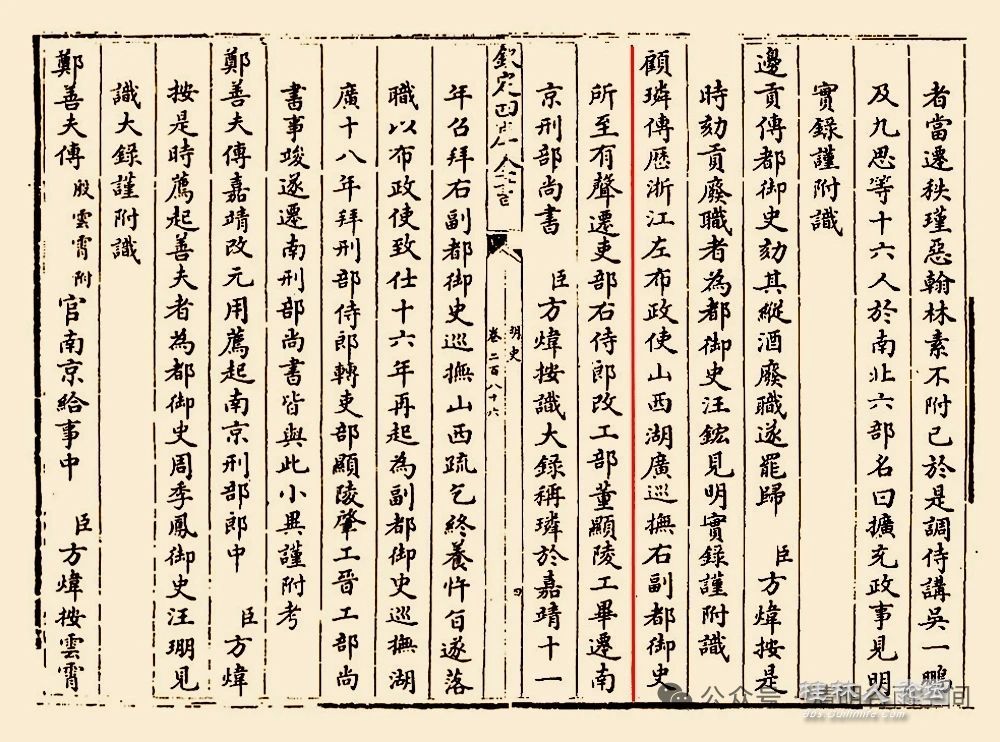 者當遷秩瑾惡翰林素不附已於是調侍講吳一鵬
及九思等十六人於南北六部名曰擴充政事見明
實錄謹附識
邊貢傳都御史劾其縱酒廢職遂罷歸 臣方煒按是
時劾貢廢職者為都御史汪鋐見明實錄謹附識
顧璘傳歷浙江左布政使山西湖廣巡撫右副都御史
所至有聲遷吏部右侍郎改工部董顯陵工畢遷南
京刑部尚書 臣方煒按識大錄稱璘於嘉靖十一
欽定四庫全書
明史
卷二百八十六
四
年召拜右副都御史巡撫山西疏乞終養忤旨遂落
職以布政使致仕十六年再起為副都御史巡撫湖
廣十八年拜刑部侍郎轉吏部顯陵肇工晉工部尚
書事竣遂遷南刑部尚書皆與此小異謹附考
鄭善夫傳嘉靖改元用薦起南京刑部郎中 臣方煒
按是時薦起善夫者為都御史周季鳳御史汪珊見
識大錄謹附識
鄭善夫傳 殷雲霄附 官南京給事中 臣方煒按雲霄
公众号
桂林人论坛
间